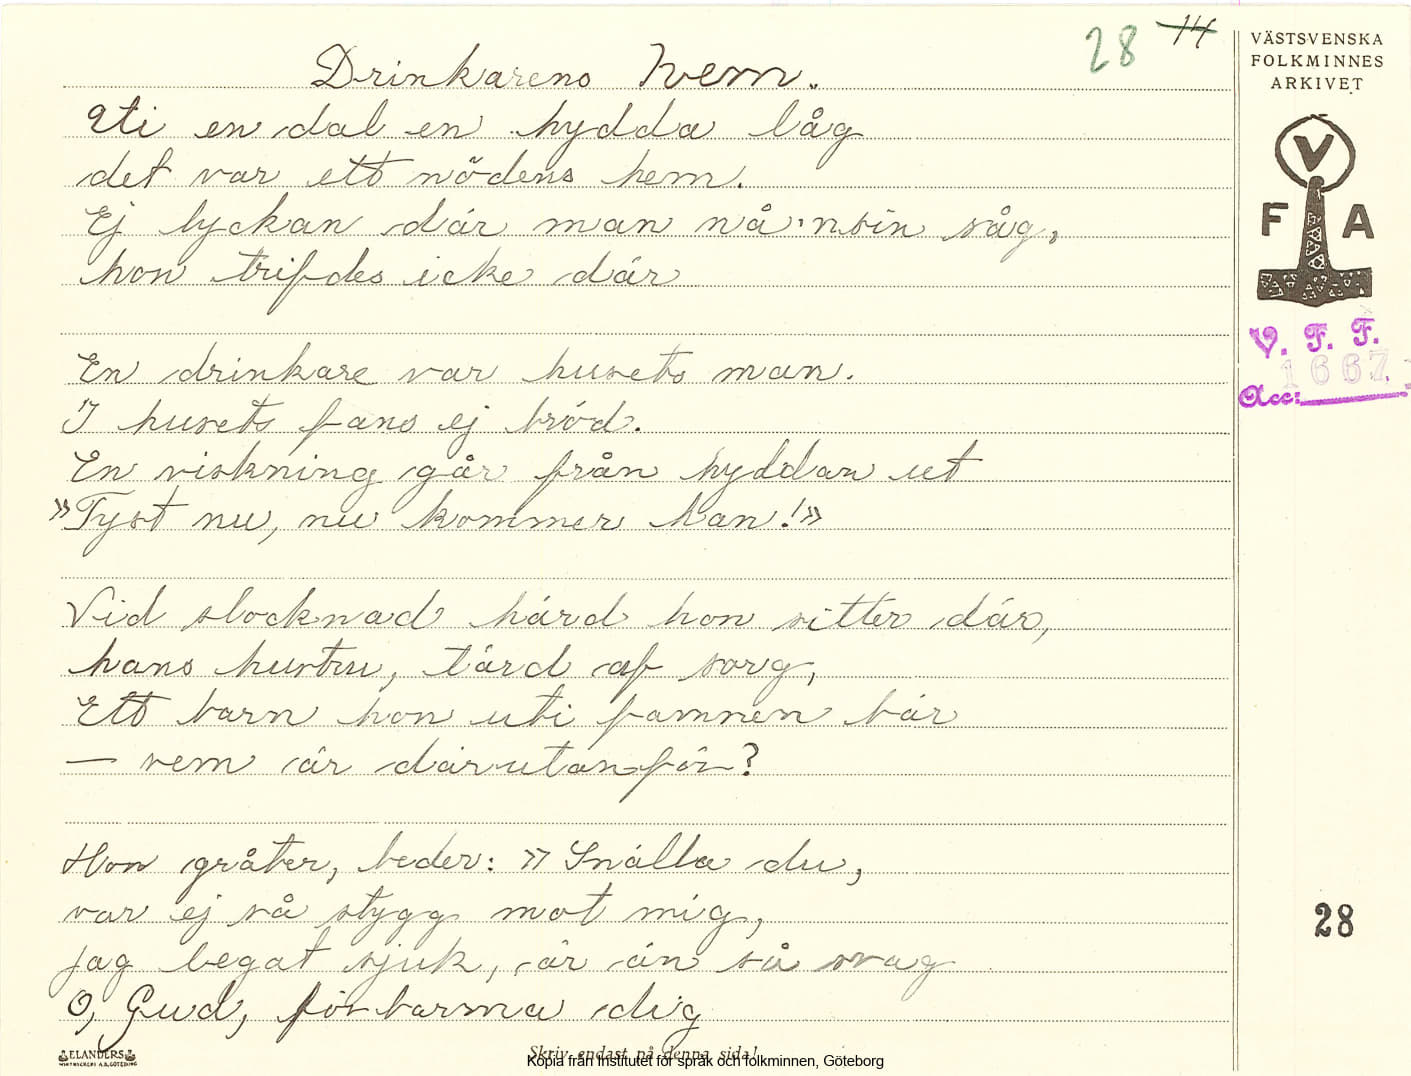 28 14
Drinkarens hem.
Uti en dal en hydda låg
det var ett nödens hem.
Ej lyckan där man nå'nsin såg,
hon trifdes icke där
En drinkare var husets man.
I husets fans ej bröd.
En viskning går från hyddan ut
»Tyst nu, nu kommer han!»
Vid slocknad härd hon sitter där,
hans hustru, tärd af sorg,
Ett barn hon uti famnen bär
— vem är där utanför?
Hon gråter, beder: »Snälla du,
var ej så stygg mot mig,
jag legat sjuk, är än så svag
O, Gud, förbarma dig
VÄSTSVENSKA
FOLKMINNES
ARKIVET
V
F A
V. F. F.
1667
Acc:
28
ELANDERS
Skriv endast på denna sida!
Kopia från Institutet för språk och folkminnen, Göteborg